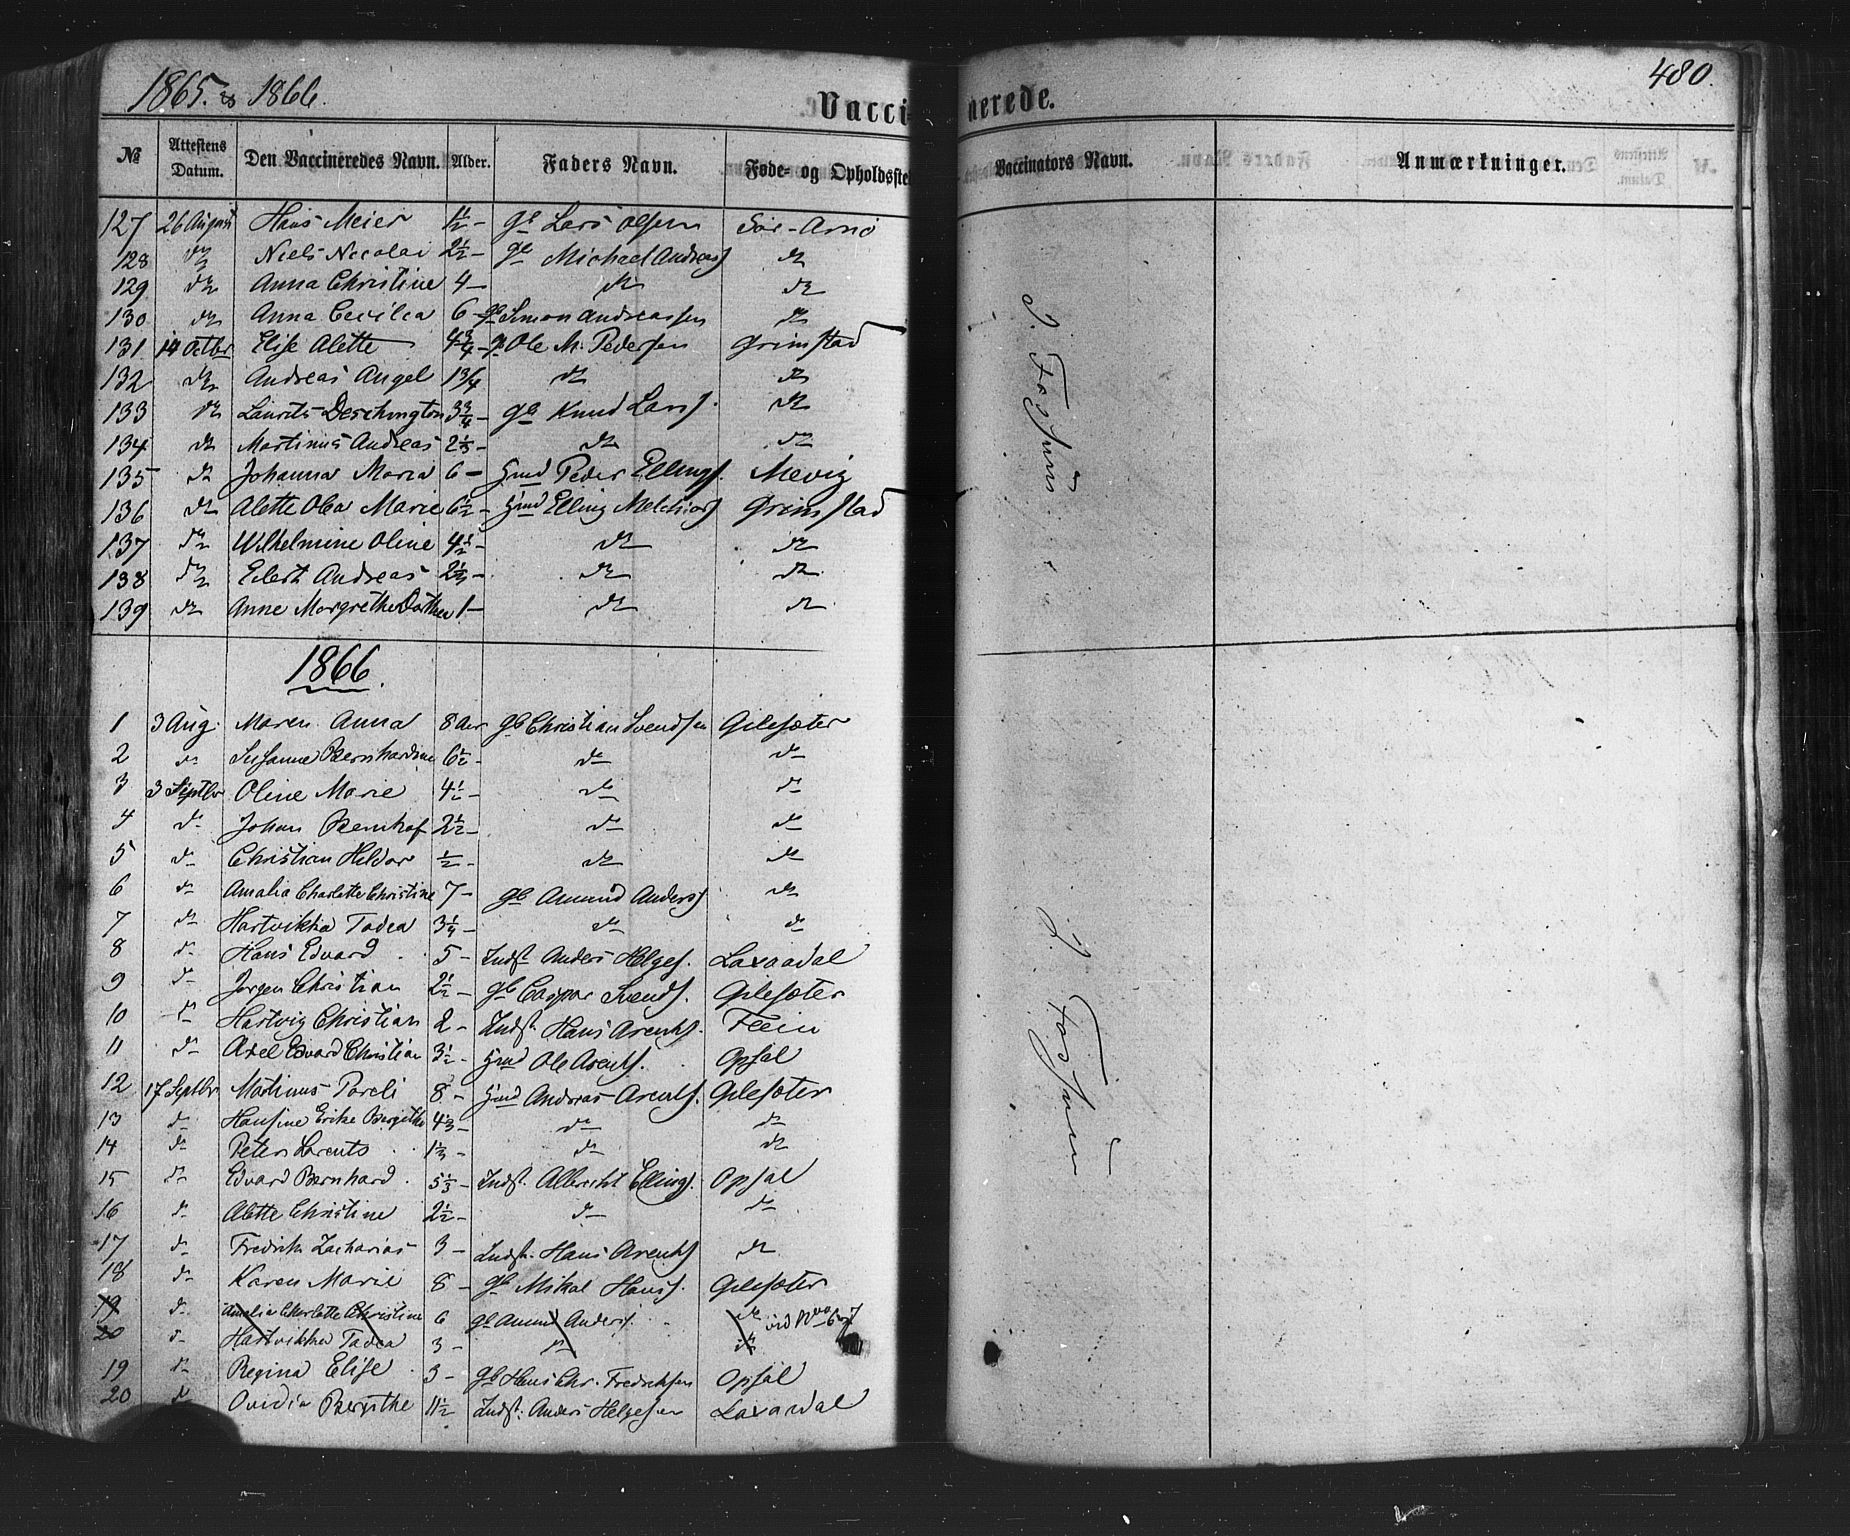 1865. & 1866.
480.
Vaccinerede.
№ Attestens Datum. Den Vaccineredes Navn. Alder. Faders Navn. Føde- og Opholdsste Vaccinators Navn. Anmærkninger.
127 26 August Hans Meier 1½ – Lars Olsen Sør-Arnø
128 do Niels Nicolai 2½ – Michael Andreas do
129 do Anna Christine 4 – do do
130 do Anna Cecilia 6 – Simon Andreassen do
131 14 Octbr Elise Alette 4¾ – Ole M. Pedersen Grimstad
132 do Andreas Angel 1¾ do do
133 do Laurits Deschington 3¾ – gb Knud Lars. do
134 do Martinus Andreas 2⅓ – do do
135 do Johanna Maria 6 – Hmd Peder Ellings. Mevig
136 do Alette Olea Marie 6½ – Hmd Elling Melchiors Grimstad
137 do Wilhelmine Oline 4½ – do do
138 do Edert Andreas 2½ – do do
139 do Anne Margrethe Dorthea 1 – do do
J. Fossum
1866.
1 3 Aug. Maren Anna 8 Aar gb Christian Svendsen Gilesæter
2 do Susanne Bernhardine 6½ – do do
3 3 Septbr Oline Marie 4½ – do do
4 do Johan Bernhof 2½ – do do
5 do Christian Hildor ½ – do do
6 do Amalia Charlotte Christine 7 – gb Amund Anders. do
7 do Hartvikka Tadea 3¼ – do do
8 do Hans Edvard 5 – Indst. Anders Helges. Laxaadal
9 do Jørgen Christian 2½ – gb Caspar Svends. Gilesæter
10 do Hartvig Christian 2 – Indst. Hans Arents. Flein
11 do Axel Edvard Christian 3½ – Hmd Ole Arents. Opsal
12 17 Septbr Martinus Pareli 8 – Hmd Andreas Arents. Gilesæter
13 do Hansine Erike Bergithe 4⅔ – do do
14 do Peter Lorents 1½ – do do
15 do Edvard Bernhard 5⅓ – Indst. Albrecht Ellings. Opsal
16 do Alette Christine 2½ – do do
17 do Fredrik Zacharias 3 – Indst. Hans Arents do
18 do Karen Marie 8 – gb Mikal Hans. Gilesæter
19 do Amalia Charlotte Christine 6 gb Amund Anders. do vid No 6 og 7
20 do Hartvikka Tadea 3 – do do
19 do Regina Elise 3 – gb Hans Chr. Fredriksen Opsal
20 do Ovidia Bergithe 11½ Indst. Anders Helgesen Laxaadal
J. Fossum